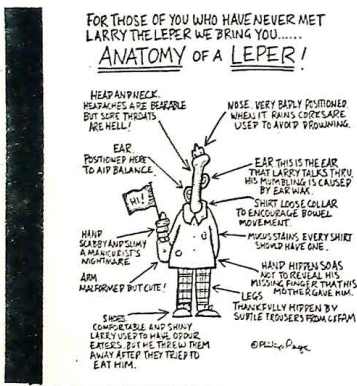 FOR THOSE OF YOU WHO HAVE NEVER MET
LARRY THE LEPER WE BRING YOU......
ANATOMY OF A LEPER!
HEAD AND NECK.
HEADACHES ARE BEARABLE
BUT SORE THROATS
ARE HELL!
NOSE. VERY BADLY POSITIONED.
WHEN IT RAINS CORKS ARE
USED TO AVOID DROWNING.
EAR.
POSITIONED HERE
TO AID BALANCE.
EAR THIS IS THE EAR
THAT LARRY TALKS THRU.
HIS MUMBLING IS CAUSED
BY EAR WAX.
HI!
SHIRT LOOSE COLLAR
TO ENCOURAGE BOWEL
MOVEMENT.
HAND
SCABBY AND SLIMY
A MANICURIST'S
NIGHTMARE
MUCUS STAINS EVERY SHIRT
SHOULD HAVE ONE.
ARM
MALFORMED BUT CUTE!
HAND HIDDEN SO AS
NOT TO REVEAL HIS
MISSING FINGER THAT HIS
MOTHER GAVE HIM.
LEGS
THANKFULLY HIDDEN BY
SUBTLE TROUSERS FROM OXFAM
SHOES
COMFORTABLE AND SHINY
LARRY USED TO HAVE ODOUR
EATERS. BUT HE THREW THEM
AWAY AFTER THEY TRIED TO
EAT HIM.
©Philip Page